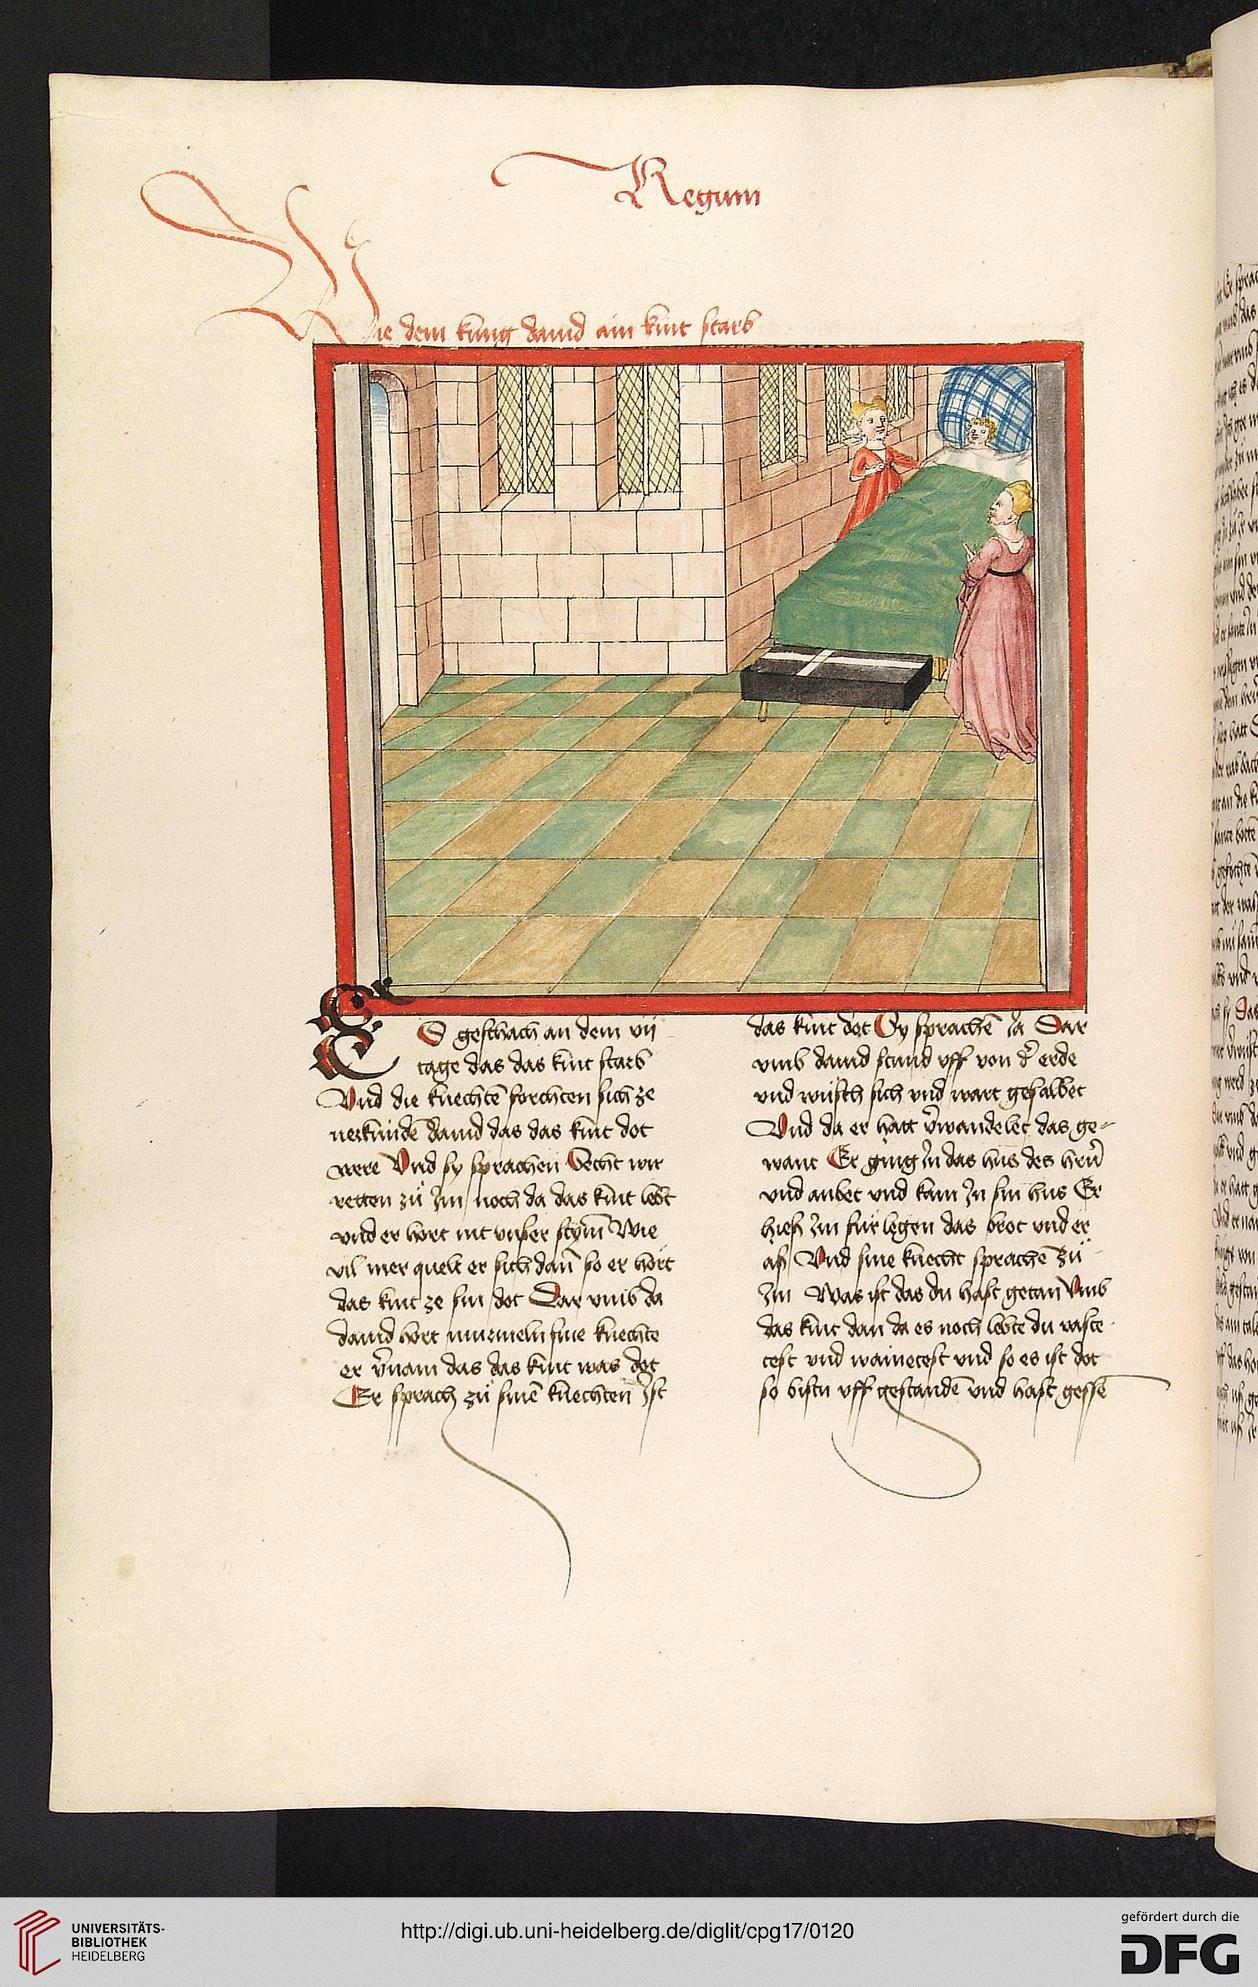 Regum
Wie dem kung dauid ain kint starb
ES geschach an dem vij
tage das das kint starb
Vnd die knechtē forchten sich ze
uerkundē dauid das das kint dot
were Vnd sy sprachen Secht wir
retten zů Im noch da das kint lebt
vnd er hort nit vnser stym Wie
vil mer quelt er sich dañ so er hört
das kint ze sin dot Dar vmb da
dauid hort murmeln sine knechte
er v̄nam das das kint was dot
Er sprach zů sinē knechten Ist
das kint dot Sy sprachē Ia Dar
vmb dauid stand vff von d̄ erde
vnd wusch sich vnd wart gesalbet
Vnd da er hatt v̄wandelet das ge-
want Er ging In das hus des herñ
vnd anbet vnd kam In sin hus Er
hieß Im für legen das brot vnd er
aß Vnd sine knecht sprachē zů
Im Was ist das du hast getan Vmb
das kint dan da es noch lebte du vaste-
test vnd wainetest vnd so es ist dot
so bistu vff gestandē vnd hast gessē
UNIVERSITÄTS-
BIBLIOTHEK
HEIDELBERG
http://digi.ub.uni-heidelberg.de/diglit/cpg17/0120
gefördert durch die
DFG